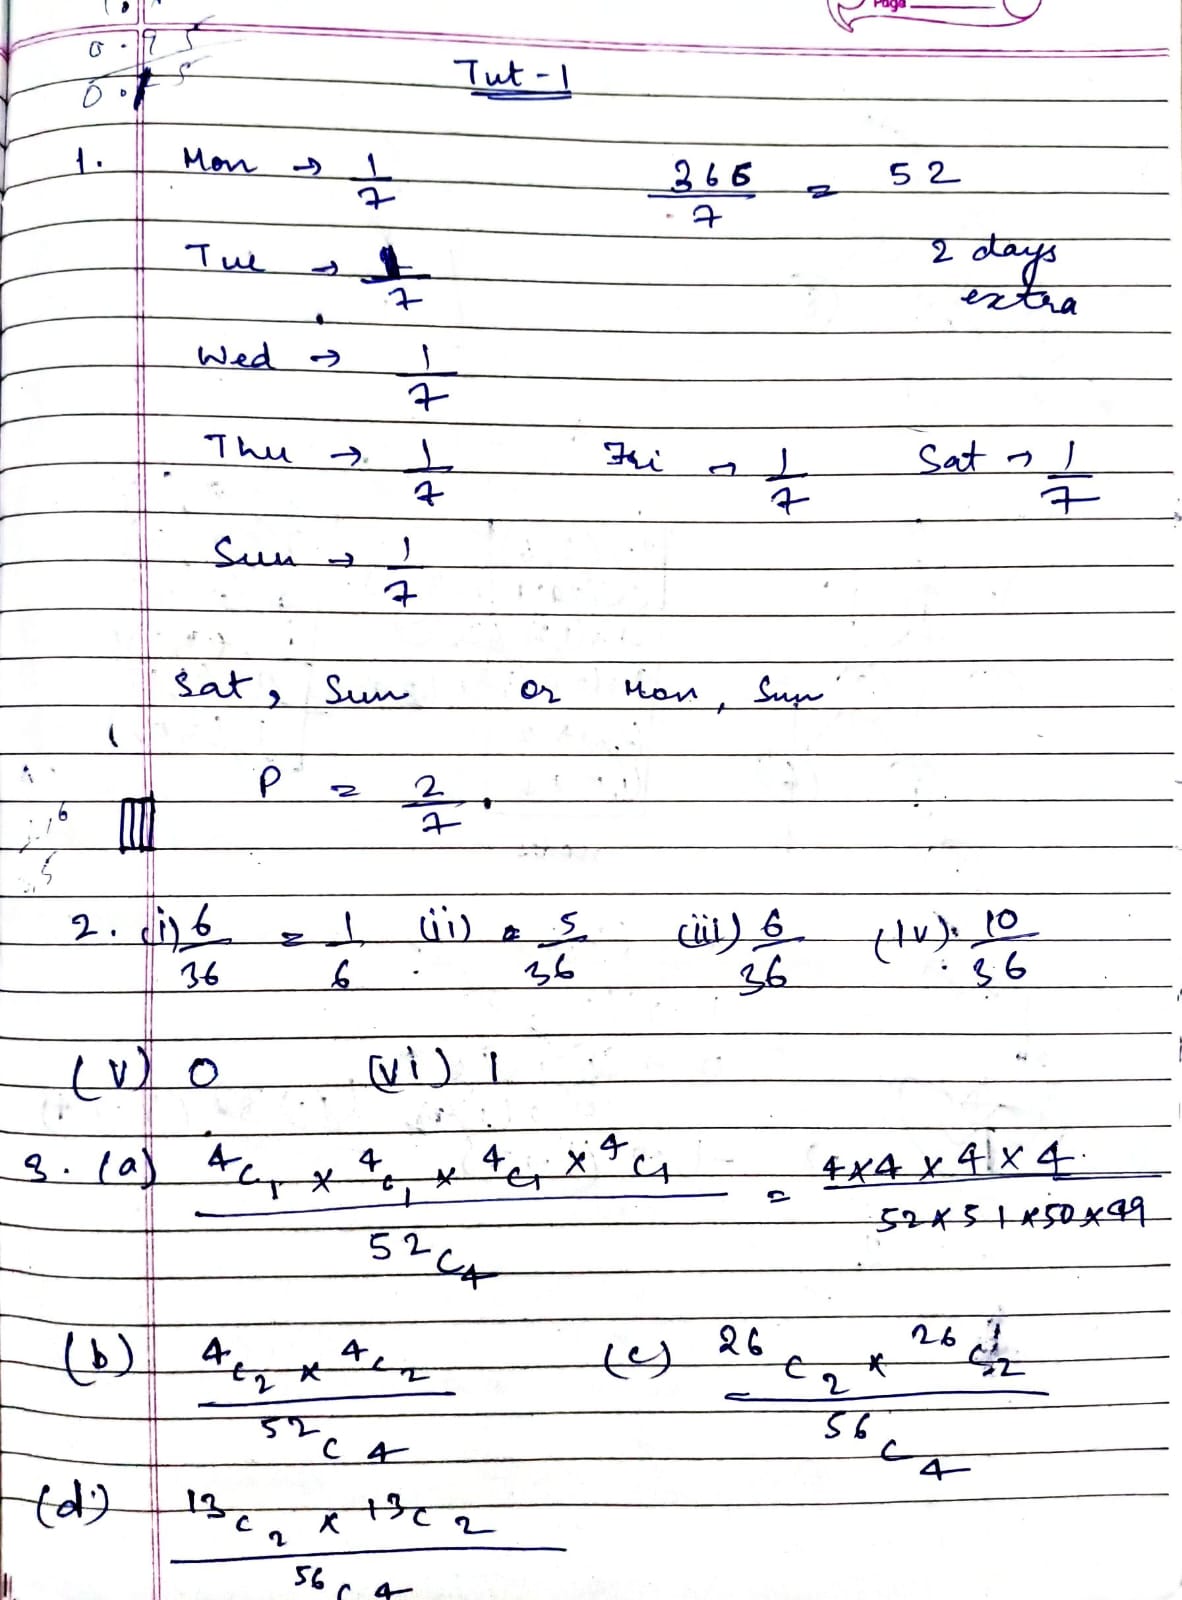 Page
0.95
0.15
Tut-1
1. Mon → 1/7 366/7 = 52
Tue → 1/7 2 days
extra
Wed → 1/7
Thu → 1/7 Fri → 1/7 Sat → 1/7
Sun → 1/7
Sat, Sun or Mon, Sun
P = 2/7.
2. (i) 6/36 = 1/6 (ii) 5/36 (iii) 6/36 (iv) 10/36
(v) 0 (vi) 1
3. (a) ⁴C₁ × ⁴C₁ × ⁴C₁ × ⁴C₁ / ⁵²C₄ = 4×4×4×4 / 52×51×50×49
(b) ⁴C₂ × ⁴C₂ / ⁵²C₄ (c) ²⁶C₂ × ²⁶C₂ / ⁵⁶C₄
(d) ¹³C₂ × ¹³C₂ / ⁵⁶C₄